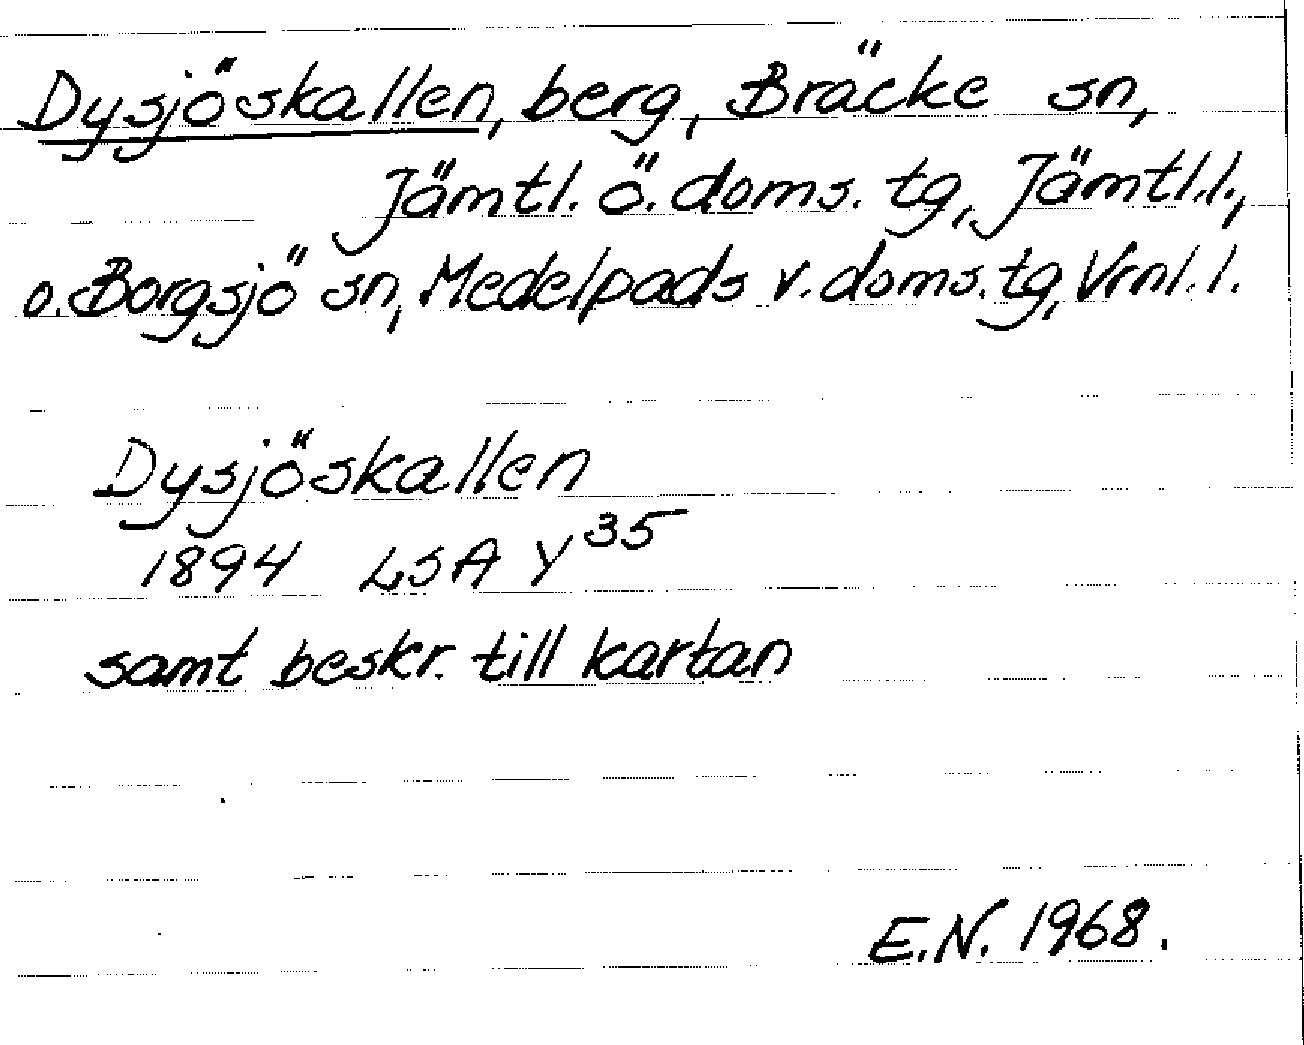 Dysjöskallen, berg, Bräcke sn,
Jämtl. ö. doms. tg, Jämtl.l.,
o. Borgsjö sn, Medelpads v. doms. tg, Vrnl. l.
Dysjöskallen
1894 LSA Y 35
samt beskr. till kartan
E.N. 1968.